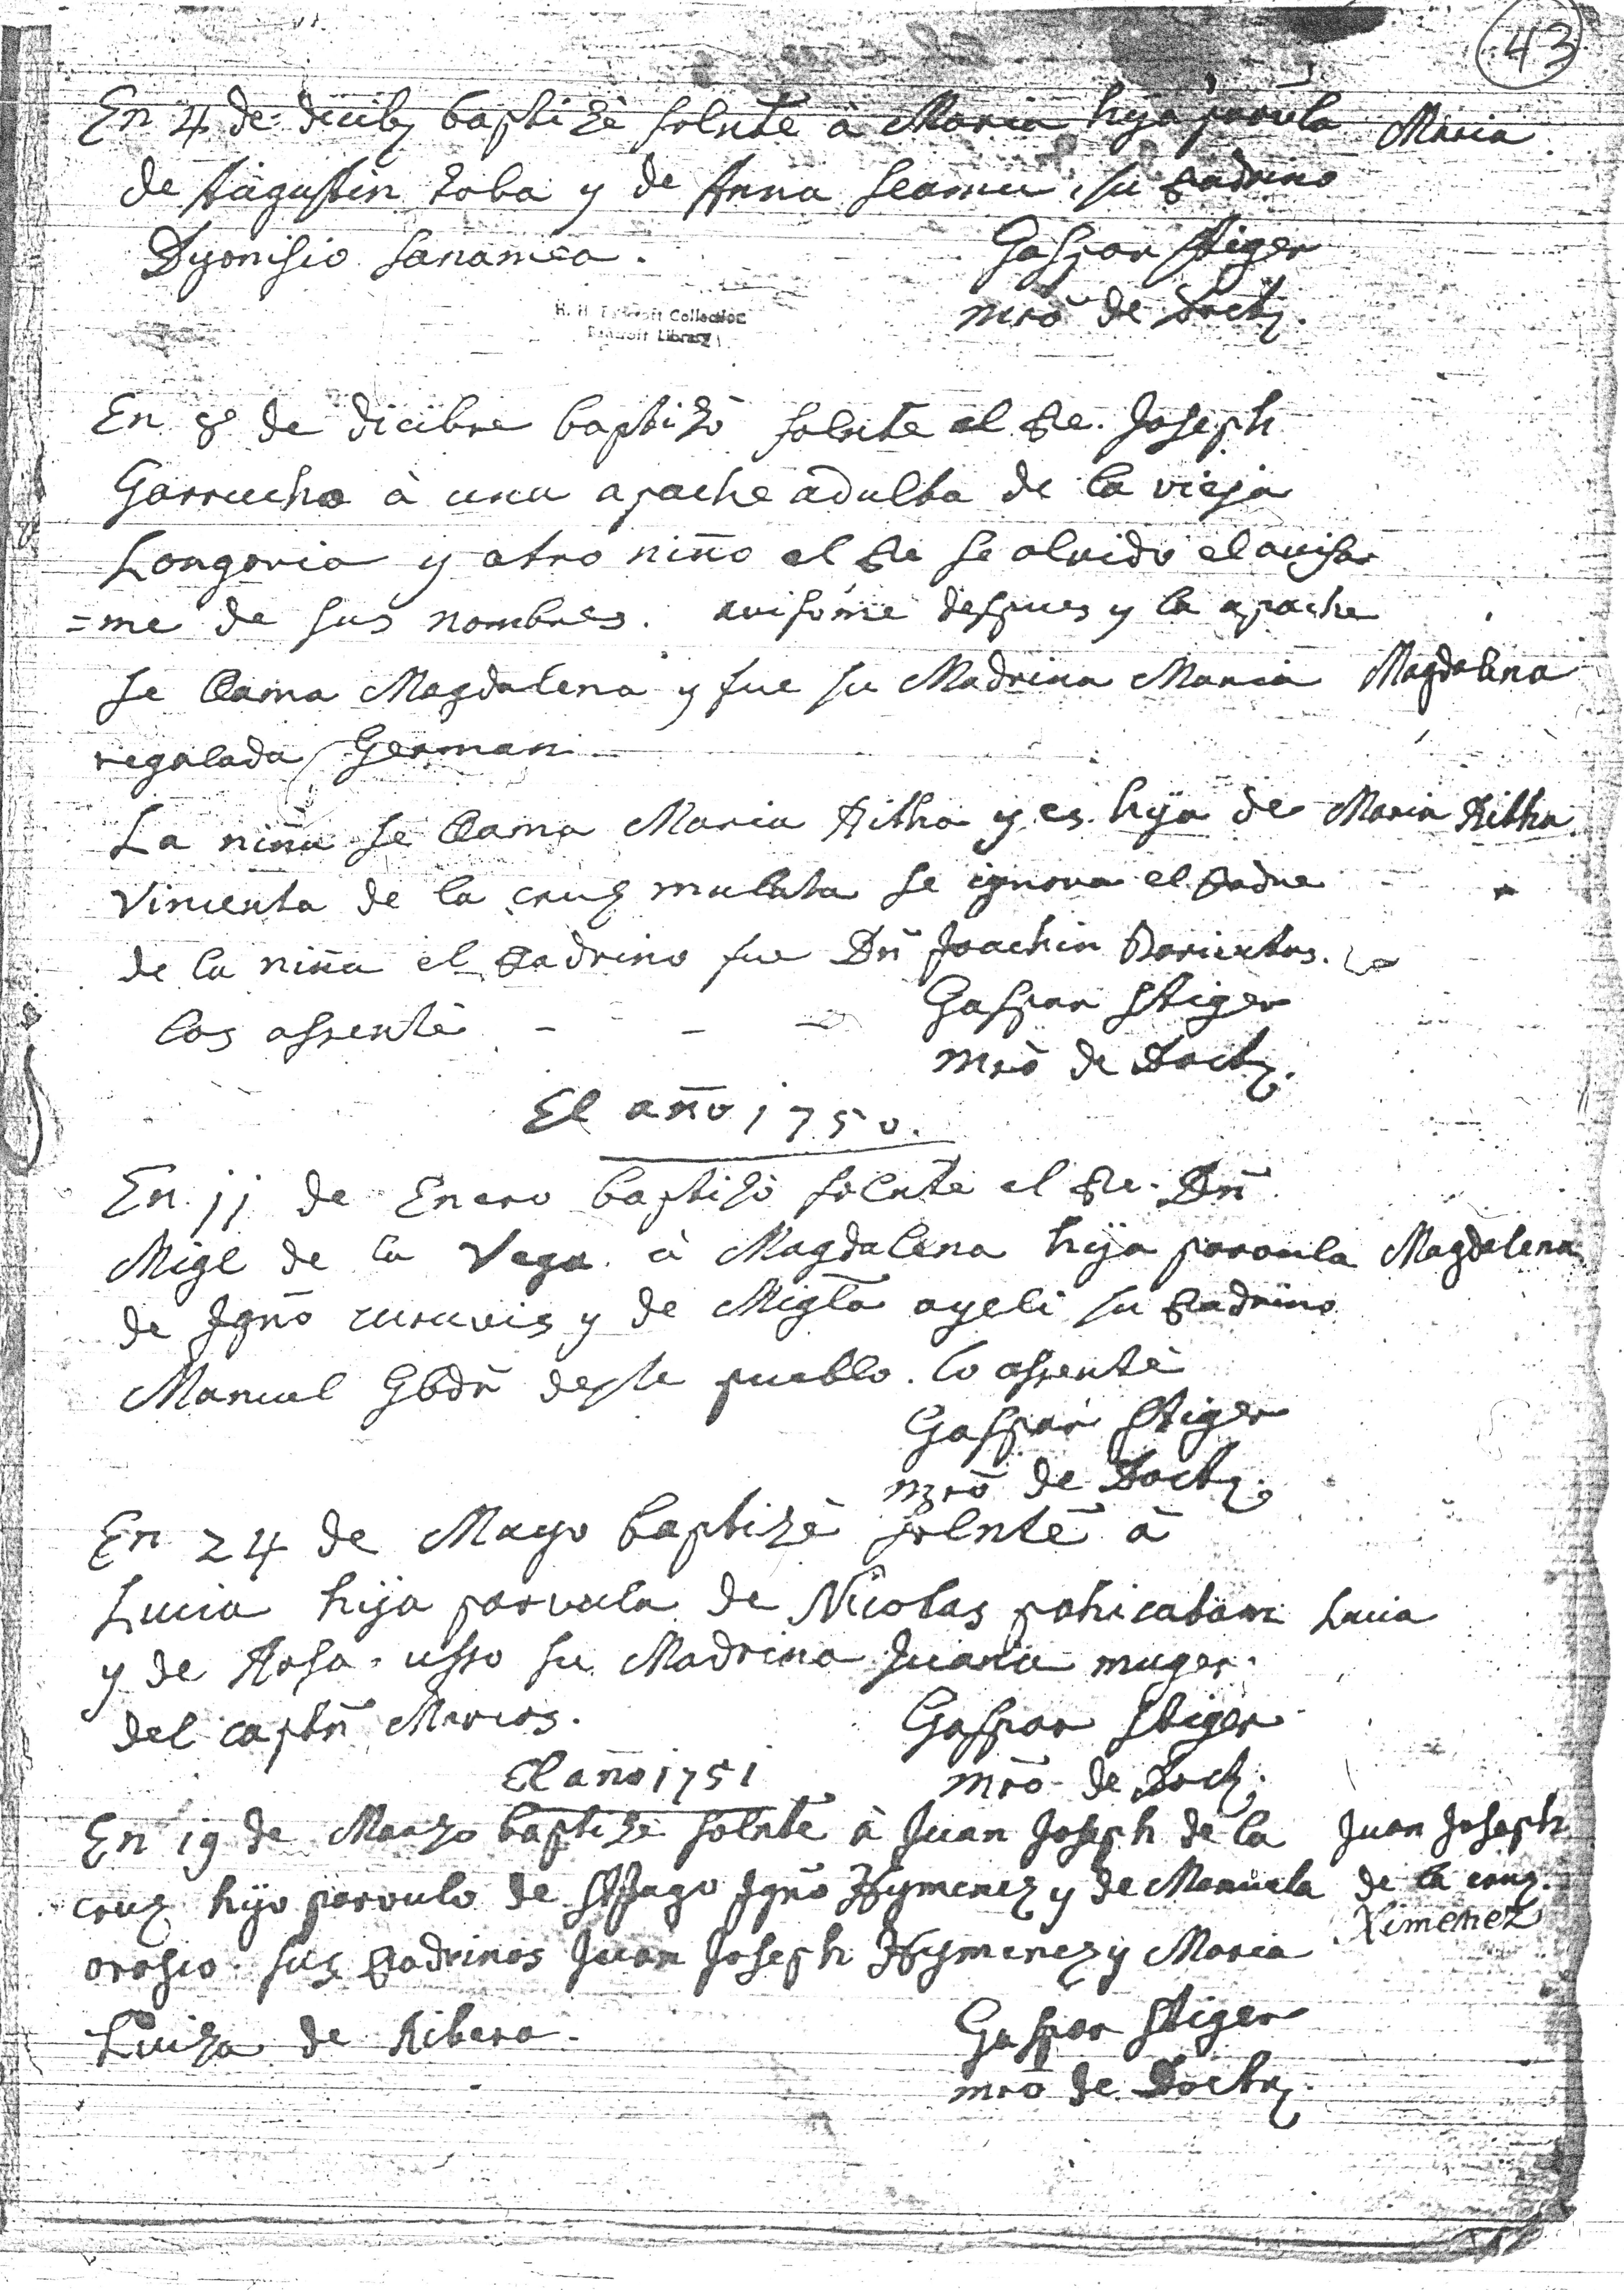 43
En 4 de dicib baptizè solnte à Maria hija parula Maria
de Augustin toba y de Anna seamu, su Padrino
Dyonisio sanamea.
Gaspar Stiger
mrõ de Doct.
H. H. Bancroft Collection
Bancroft Library
En 8 de dicibre baptizò solnte el Pe. Joseph
Garrucho à una apache adulta de la vieja
Longoria y otro niño el Pe se olvido el avisar
=me de sus nombres. avisóme despues y la apache
se llama Magdalena y fue su Madrina Maria Magdalena
regalada German
La niña se llama Maria Ritha y es hija de Maria Ritha
Vincenta de la cruz mulata se ignora el Padre
de la niña el Padrino fue Dñ Joachin Barientos.
los assentè
Gaspar Stiger
mrõ de Doct.
El año 1750.
En 11 de Enero baptizò solnte el Pe. Dñ
Migl de la Vega à Magdalena hija parvula Magdalena
de Igño cucuvis y de Miglã ayeli su Padrino
Manuel Gbdr deste pueblo. lo assentè
Gaspar Stiger
mrõ de Doct.
En 24 de Mayo baptizè solnte à
Lucia hija parvula de Nicolas pahicatam Lucia
y de Rosa usso su Madrina Juana muger
del captñ Marcos.
Gaspar Stiger
mrõ de Doct.
El año 1751
En 19 de Marzo baptizè solnte à Juan Joseph de la Juan Joseph
cruz hijo parvulo de Stiago Igño Xymenez y de Manuela de la cruz.
Ximenez
orosio. sus Padrinos Juan Joseph Xymenez y Maria
Luiza de Ribera.
Gaspar Stiger
mrõ de Doct.